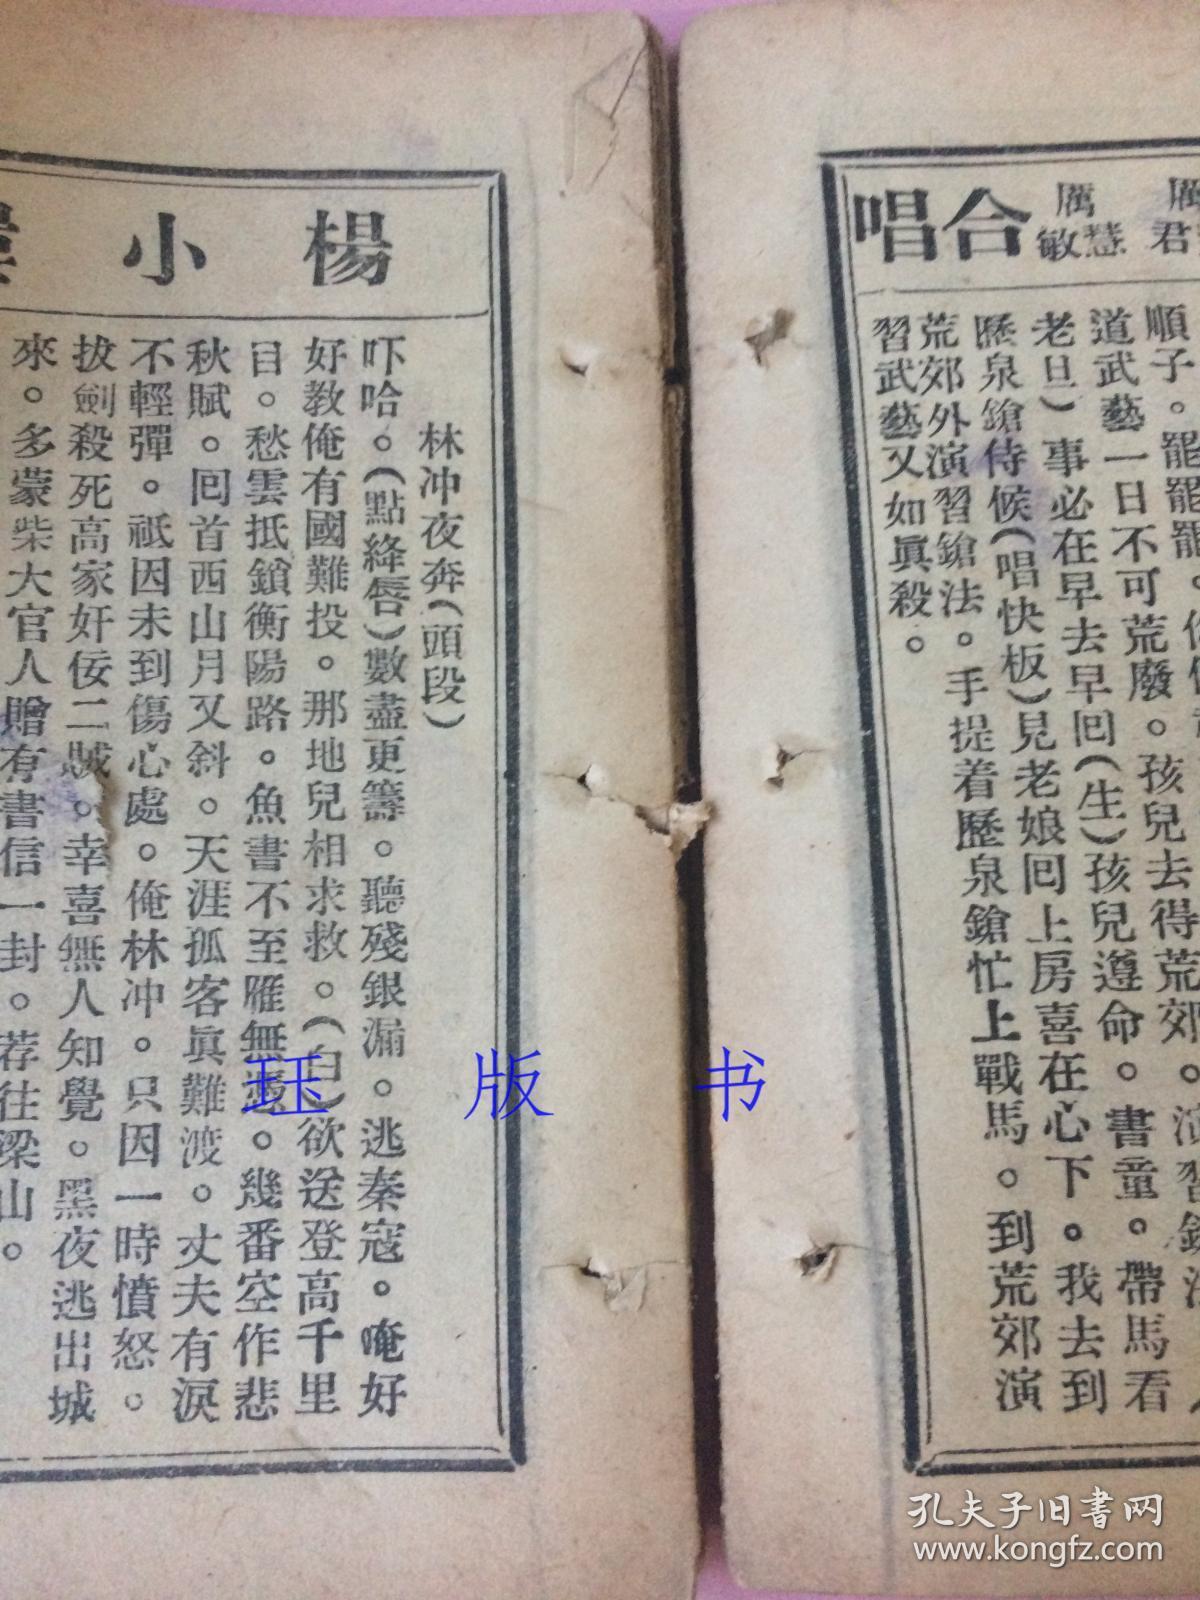 合唱
厲慧敏
順子。罷罷罷。
道武藝一日不可荒廢。孩兒去得荒郊。演習鎗法
老旦)事必在早去早回(生)孩兒遵命。書童。帶馬看
歷泉鎗侍候(唱快板)見老娘回上房喜在心下。我去到
荒郊外演習鎗法。手提着歷泉鎗忙上戰馬。到荒郊演
習武藝又如眞殺。
楊小
林冲夜奔(頭段)
吓哈。(點絳唇)數盡更籌。聽殘銀漏。逃秦寇。唵好
好教俺有國難投。那地兒相求救。(白)欲送登高千里
目。愁雲抵鎖衡陽路。魚書不至雁無憑。幾番空作悲
秋賦。回首西山月又斜。天涯孤客眞難渡。丈夫有淚
不輕彈。祇因未到傷心處。俺林冲。只因一時憤怒。
拔劍殺死高家奸佞二賊。幸喜無人知覺。黑夜逃出城
來。多蒙柴大官人贈有書信一封。荐往梁山。
珏版书
孔夫子旧书网
www.kongfz.com